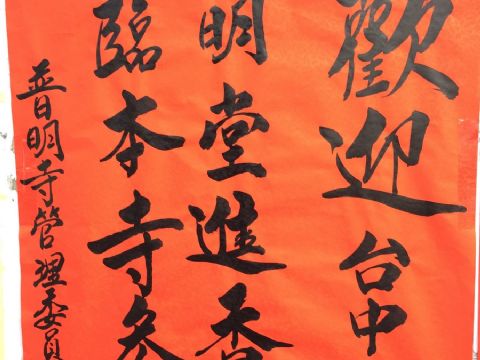 歡迎台中
明堂進香
臨本寺參
普明寺管理委員